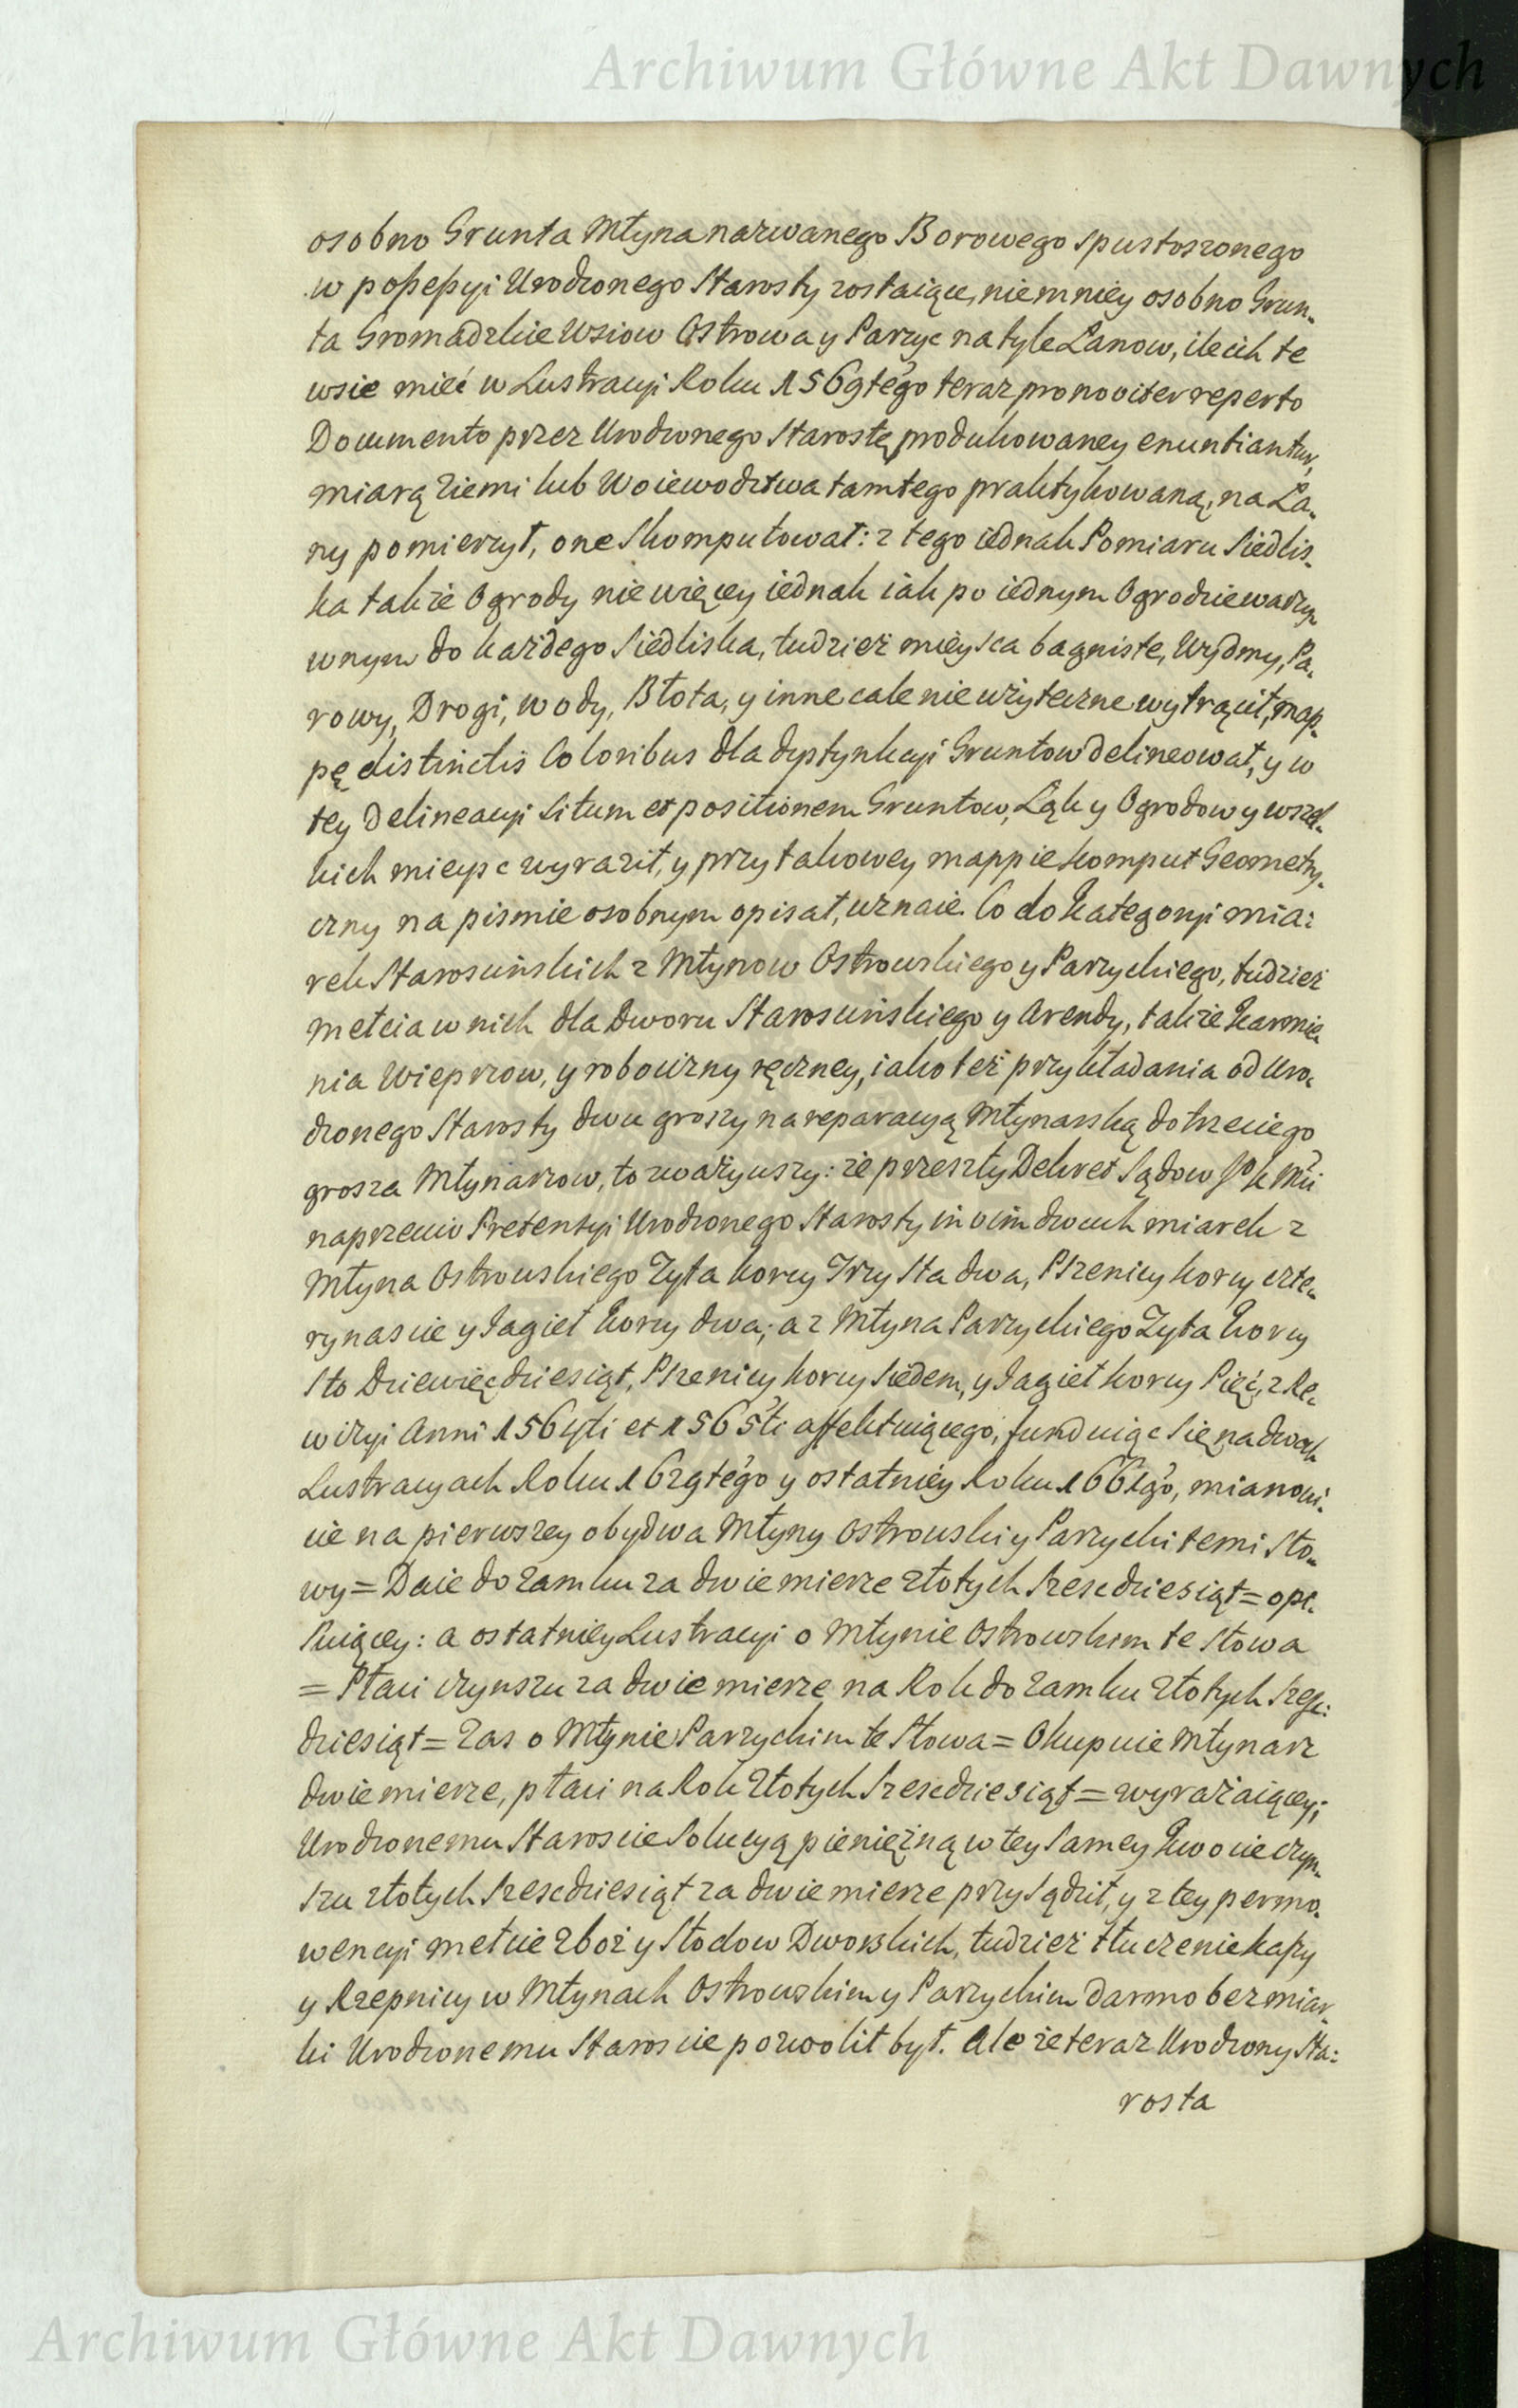 Archiwum Główne Akt Dawnych
osobno Grunta Młyna nazwanego Borowego spustoszonego
w possessyi Urodzonego Starosty zostaiące, niemniey osobno Grun-
ta Gromadzkie Wsiow Ostrowa y Parzyc na tyle Łanow, ile ich te
wsie mieć w Lustracyi Roku 1569tego teraz pro noviter reperto
Documento przez Urodzonego Starostę produkowaney enuntiantur,
miarą ziemi lub Woiewodztwa tamtego praktykowaną, na Ła-
ny pomierzył, one skomputował: z tego iednak Pomiaru Siedlis-
ka także Ogrody nie więcey iednak iak po iednym Ogrodzie warzy-
wnym do każdego Siedliska, tudzież mieysca bagniste, Wydmy, Pa-
rowy, Drogi, wody, Błota, y inne cale nieużyteczne wytrącił, map-
pę distinctis Coloribus dla dystynkcyi Gruntow delineował, y w
tey Delineacyi Situm et positionem Gruntow, Łąk y Ogrodow y wszel-
kich mieysc wyraził, y przy takowey mappie komput Geometry-
czny na pismie osobnym opisał, uznaie. Co do Kategoryi mia:
rek Starościńskich z Młynow Ostrowskiego y Parzyckiego, tudzież
mełcia w nich dla Dworu Starościńskiego y Arendy, także Karmie-
nia Wieprzow, y robocizny ręczney, iako też przykładania od Uro-
dzonego Starosty dwu groszy na reparacyą Młynarską do trzeciego
grosza Młynarzow, to zważywszy: że przeszły Dekret Sądow
naprzeciw Pretensyi Urodzonego Starosty in vim dwuch miarek z
Młyna Ostrowskiego Zyta korcy Trzysta dwa, Pszenicy korcy czte-
rynascie y Jagieł korcy dwa; a z Młyna Parzyckiego Zyta Korcy
Sto Dziewięcdziesiąt, Pszenicy korcy Siedem, y Jagieł korcy Pięć, z Re-
wizyi Anni 1564ti et 1565ti affektuiącego, funduiąc się na dwoch
Lustracyach Roku 1629tego y ostatniey Roku 1661go, mianowi-
cie na pierwszey obydwa Młyny Ostrowski y Parzycki temi sło-
wy = Daie do zamku za dwie mierze złotych szescdziesiąt = opi-
suiącey: a ostatniey Lustracyi o Młynie Ostrowskim te słowa
= Płaci czynszu za dwie mierze na Rok do zamku złotych szesc:
dziesiąt = Zas o Młynie Parzyckim te słowa = Okupuie Młynarz
dwie mierze, płaci na Rok złotych szescdziesiąt = wyrażaiącey;
Urodzonemu Staroscie Solucyą pieniężną w tey samey kwocie czyn-
szu złotych szescdziesiąt za dwie mierze przysądził, y z tey permo-
wencyi mełcie zboż y Słodow Dworskich, tudzież tłuczenie kaszy
y Rzepnicy w Młynach Ostrowskim y Parzyckim darmo bez miar-
ki Urodzonemu Staroscie pozwolił był. Ale że teraz Urodzony Sta:
rosta
Archiwum Główne Akt Dawnych